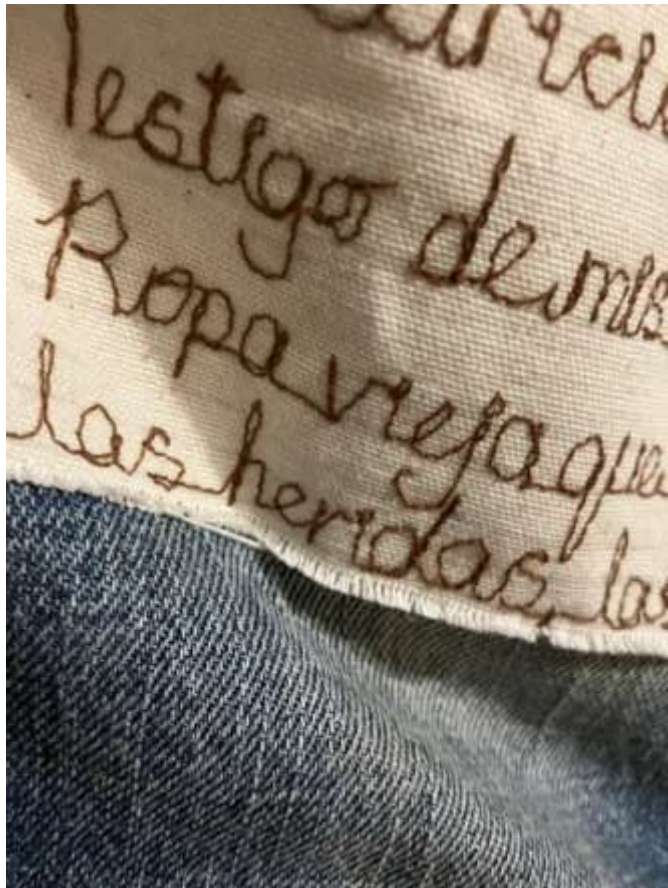 Testigo de mis
Ropa vieja que
las heridas, las